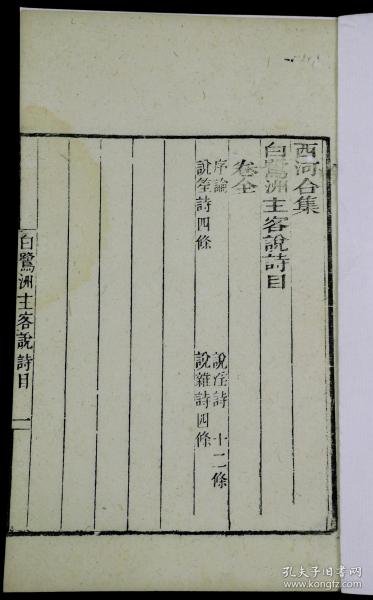 西河合集
白鷺洲主客說詩目
卷全
序論
說淫詩十二條
說笙詩四條
說雜詩四條
白鷺洲主客說詩目 一
孔夫子旧书网